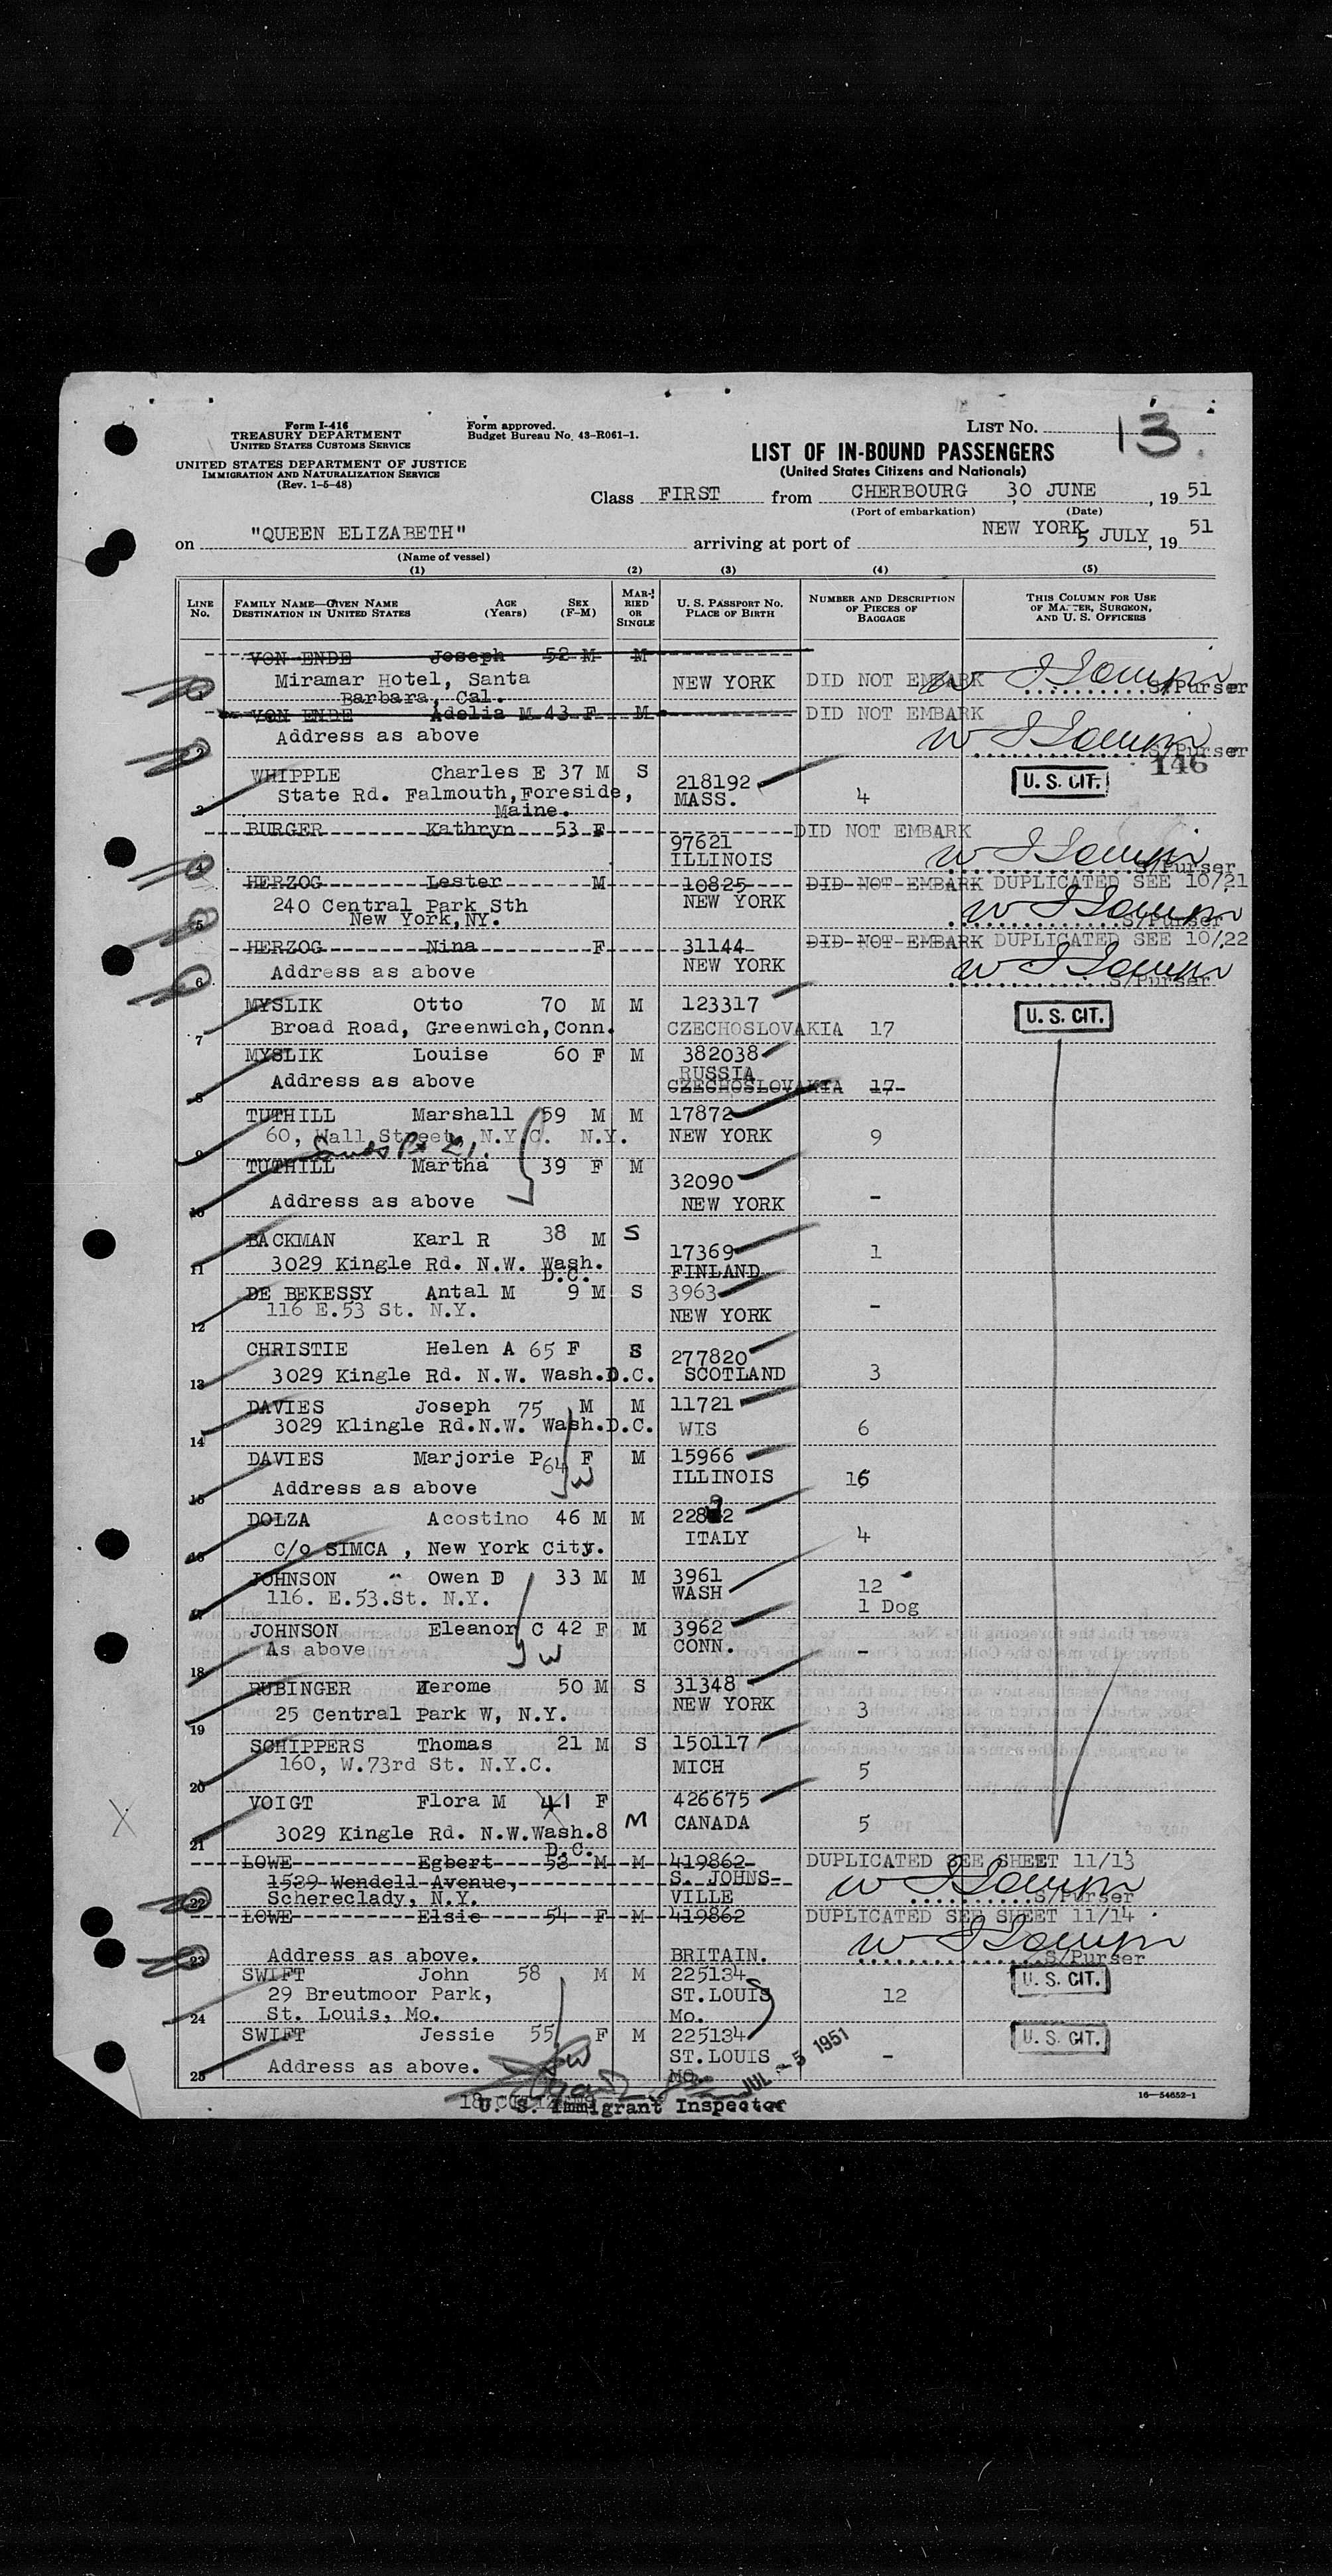 Form I-416
TREASURY DEPARTMENT
UNITED STATES CUSTOMS SERVICE
Form approved.
Budget Bureau No. 43-R061-1.
LIST No. 13
UNITED STATES DEPARTMENT OF JUSTICE
IMMIGRATION AND NATURALIZATION SERVICE
(Rev. 1-5-48)
LIST OF IN-BOUND PASSENGERS
(United States Citizens and Nationals)
Class FIRST from CHERBOURG 30 JUNE, 1951
(Port of embarkation) (Date)
on "QUEEN ELIZABETH" arriving at port of NEW YORK 5 JULY, 1951
(Name of vessel)
(1) (2) (3) (4) (5)
LINE No. FAMILY NAME—GIVEN NAME DESTINATION IN UNITED STATES AGE (Years) SEX (F-M) MARRIED OR SINGLE U. S. PASSPORT No. PLACE OF BIRTH NUMBER AND DESCRIPTION OF PIECES OF BAGGAGE THIS COLUMN FOR USE OF MASTER, SURGEON, AND U. S. OFFICERS
VON ENDE Joseph 52 M M
1 Miramar Hotel, Santa NEW YORK DID NOT EMBARK
Barbara, Cal. S/Purser
VON ENDE Adelia M 43 F M DID NOT EMBARK
Address as above
2 S/Purser
146
WHIPPLE Charles E 37 M S 218192 U. S. CIT.
State Rd. Falmouth, Foreside, MASS. 4
3 Maine.
BURGER Kathryn 53 F DID NOT EMBARK
97621
4 ILLINOIS S/Purser
HERZOG Lester M 10825 DID NOT EMBARK DUPLICATED SEE 10/21
240 Central Park Sth NEW YORK
5 New York, NY. S/Purser
HERZOG Nina F 31144 DID NOT EMBARK DUPLICATED SEE 10/22
Address as above NEW YORK
6 S/Purser
MYSLIK Otto 70 M M 123317 U. S. CIT.
7 Broad Road, Greenwich, Conn. CZECHOSLOVAKIA 17
MYSLIK Louise 60 F M 382038
RUSSIA
8 Address as above CZECHOSLOVAKIA 17
TUTHILL Marshall 59 M M 17872
9 60, Wall Street, N.Y.C. N.Y. NEW YORK 9
TUTHILL Martha 39 F M 32090
10 Address as above NEW YORK -
BACKMAN Karl R 38 M S 17369 1
11 3029 Kingle Rd. N.W. Wash. FINLAND
D.C.
DE BEKESSY Antal M 9 M S 3963 -
12 116 E.53 St. N.Y. NEW YORK
CHRISTIE Helen A 65 F S 277820
13 3029 Kingle Rd. N.W. Wash.D.C. SCOTLAND 3
DAVIES Joseph 75 M M 11721
14 3029 Klingle Rd.N.W. Wash.D.C. WIS 6
DAVIES Marjorie P 64 F M 15966
ILLINOIS 16
15 Address as above
DOLZA Acostino 46 M M
16 C/o SIMCA , New York City. ITALY 4
JOHNSON Owen D 33 M M 3961
WASH 12
17 116. E.53.St. N.Y. 1 Dog
JOHNSON Eleanor C 42 F M 3962
18 As above CONN. -
RUBINGER Jerome 50 M S 31348
19 25 Central Park W, N.Y. NEW YORK 3
SCHIPPERS Thomas 21 M S 150117
20 160, W.73rd St. N.Y.C. MICH 5
VOIGT Flora M 41 F M 426675
21 3029 Kingle Rd. N.W.Wash.8 CANADA 5
D.C.
LOWE Egbert 53 M M 419862 DUPLICATED SEE SHEET 11/13
1539 Wendell Avenue, S. JOHNS-
22 Schereclady, N.Y. VILLE S/Purser
LOWE Elsie 54 F M 419862 DUPLICATED SEE SHEET 11/14
23 Address as above. BRITAIN. S/Purser
SWIFT John 58 M M 225134 U. S. CIT.
29 Breutmoor Park, ST.LOUIS 12
24 St. Louis, Mo. Mo.
SWIFT Jessie 55 F M 225134 U. S. CIT.
ST.LOUIS -
25 Address as above. MO.
JUL - 5 1951
U. S. Immigrant Inspector
16—54652-1